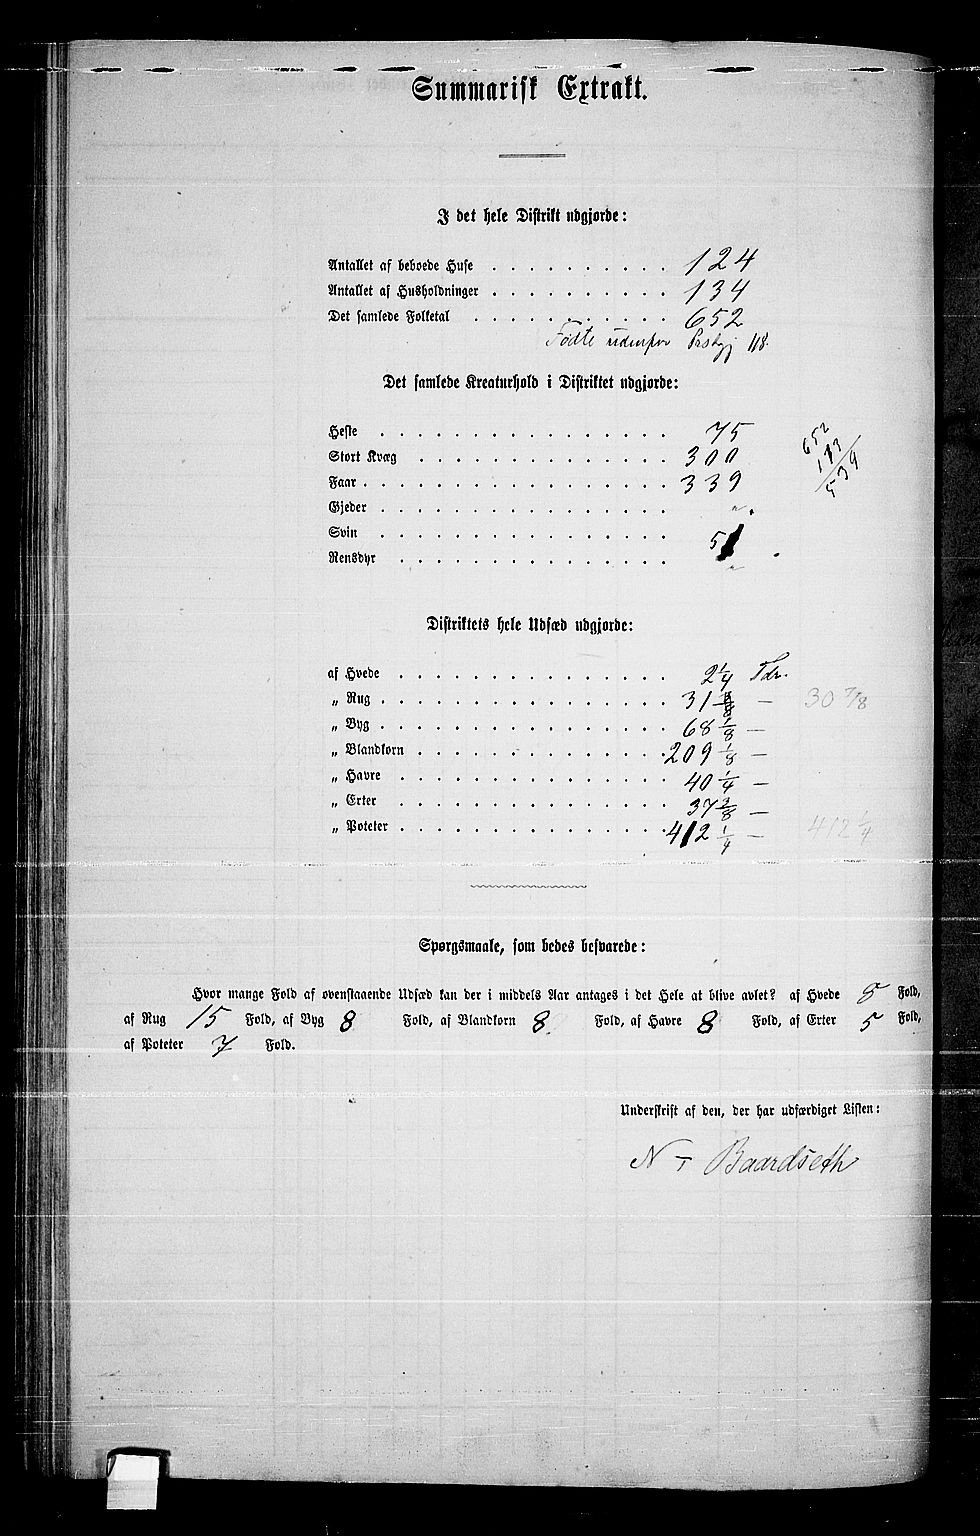 Summarisk Extrakt.
I det hele Distrikt udgjorde:
Antallet af beboede Huse . . . . . . . . . . 124
Antallet af Husholdninger . . . . . . . . . . 134
Det samlede Folketal . . . . . . . . . . . 652
Fødte udenfor Prstgj 118.
Det samlede Kreaturhold i Distriktet udgjorde:
Heste . . . . . . . . . . . . . . . . 75
Stort Kvæg . . . . . . . . . . . . . . 300
Faar . . . . . . . . . . . . . . . . . 339
Gjeder . . . . . . . . . . . . . . . . "
Svin . . . . . . . . . . . . . . . . 51
Rensdyr . . . . . . . . . . . . . . . "
652
113
539
Distriktets hele Udsæd udgjorde:
af Hvede . . . . . . . . . . . . . . . 2 1/4 Tdr.
„ Rug . . . . . . . . . . . . . . . . 31 — 30 7/8
„ Byg . . . . . . . . . . . . . . . . 68 1/8 —
„ Blandkorn . . . . . . . . . . . . . . 209 1/8 —
„ Havre . . . . . . . . . . . . . . . 40 1/4 —
„ Erter . . . . . . . . . . . . . . . 37 3/8 —
„ Poteter . . . . . . . . . . . . . . . 412 1/4 — 412 1/4
Spørgsmaale, som bedes besvarede:
Hvor mange Fold af ovenstaaende Udsæd kan der i middels Aar antages i det Hele at blive avlet? af Hvede 8 Fold,
af Rug 15 Fold, af Byg 8 Fold, af Blandkorn 8 Fold, af Havre 8 Fold, af Erter 5 Fold,
af Poteter 7 Fold.
Underskrift af den, der har udfærdiget Listen:
N – Baardseth